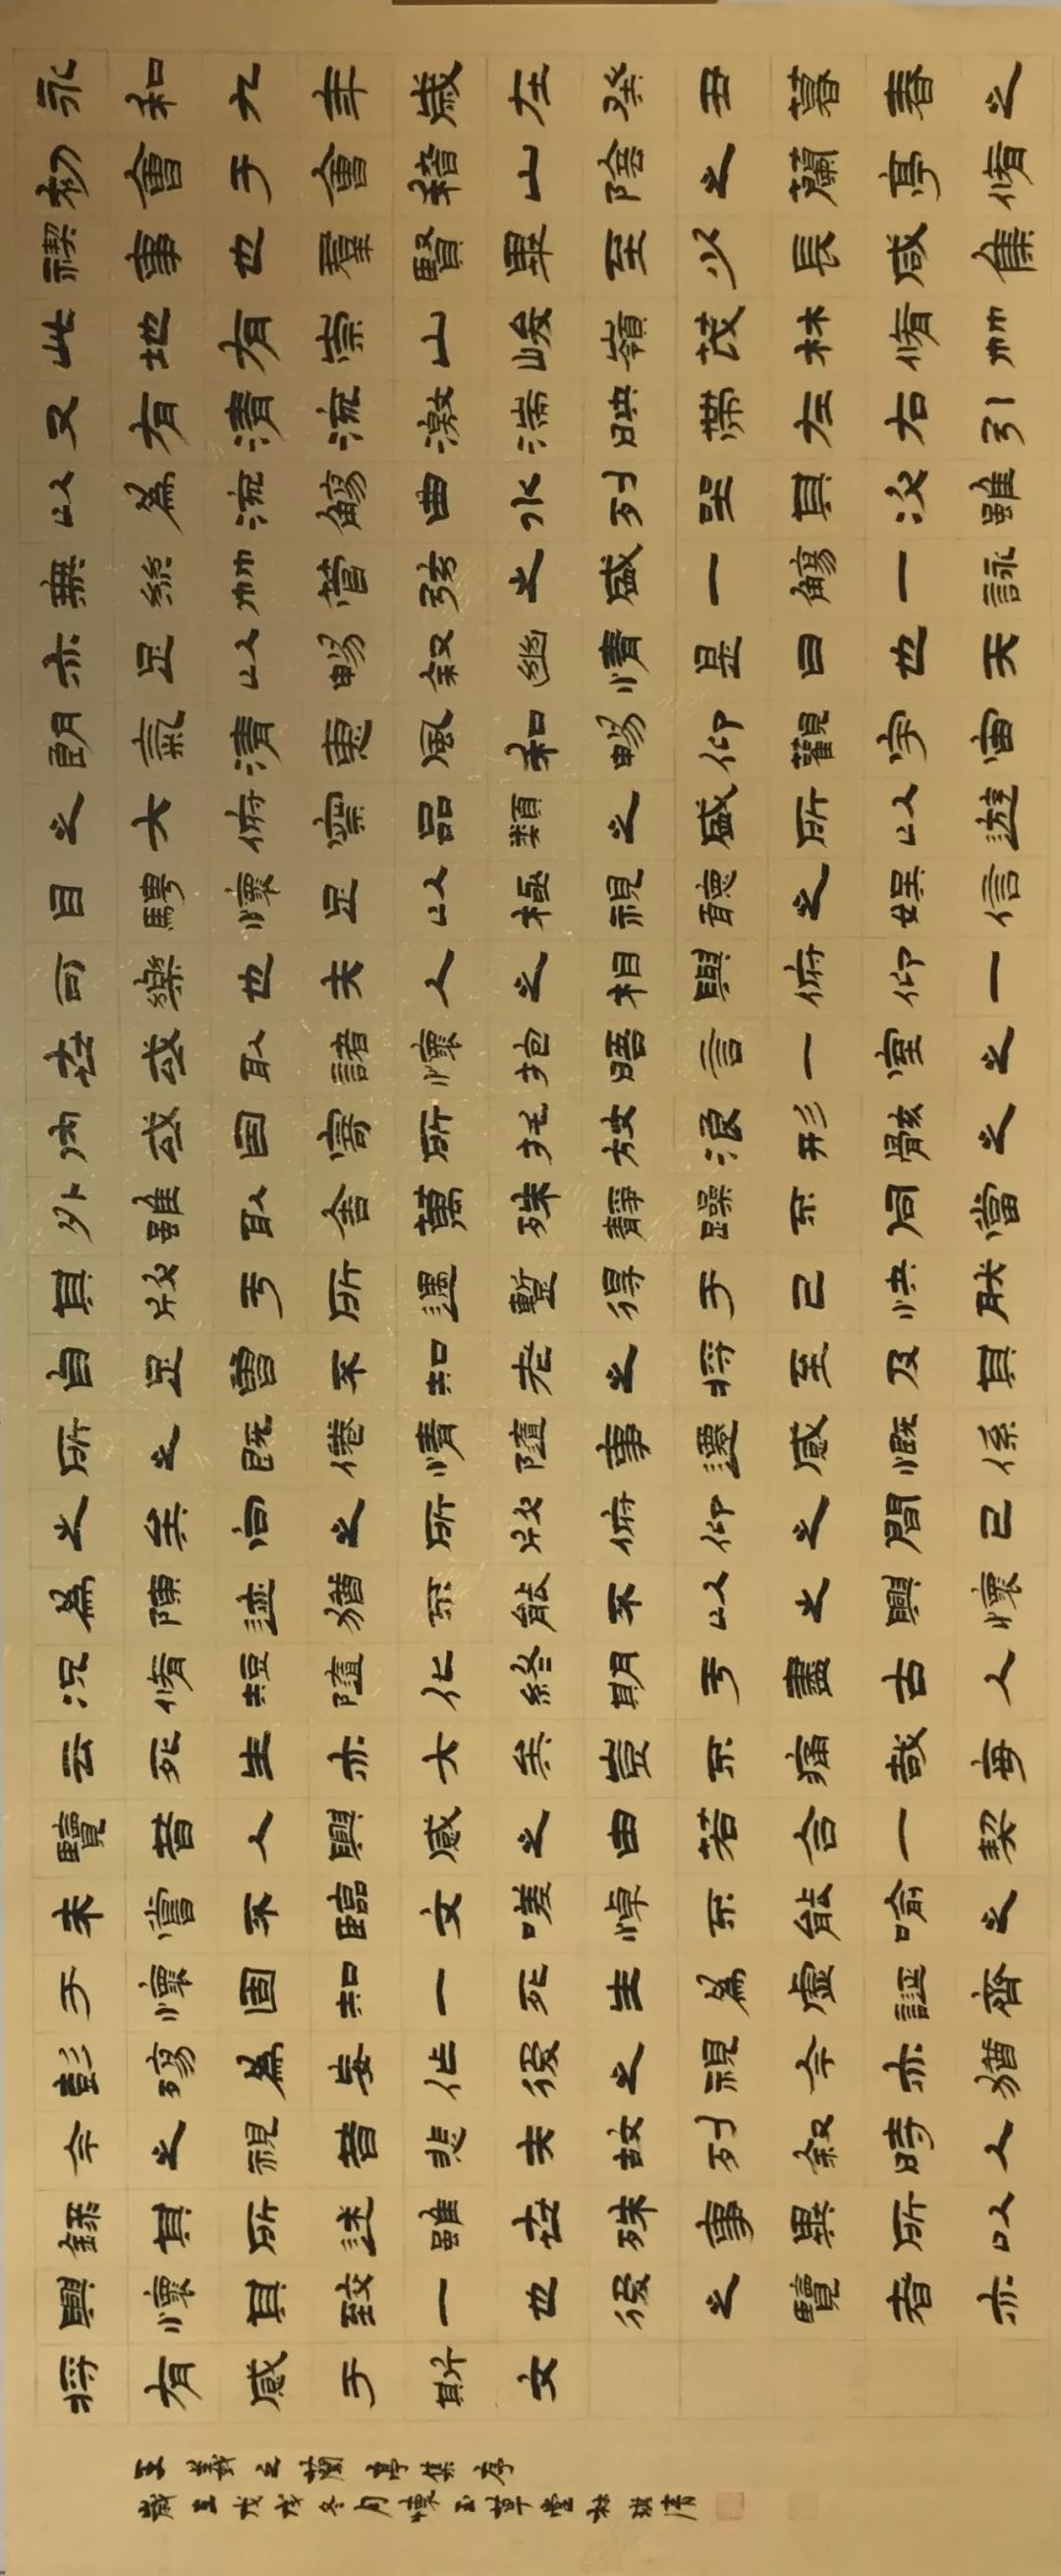 永和九年歲在癸丑暮春之
初會于會稽山陰之蘭亭脩
禊事也羣賢畢至少長咸集
此地有崇山峻嶺茂林脩竹
又有清流激湍映帶左右引
以為流觴曲水列坐其次雖
無絲竹管弦之盛一觴一詠
亦足以暢敘幽情是日也天
朗氣清惠風和暢仰觀宇宙
之大俯察品類之盛所以遊
目騁懷足以極視聽之娛信
可樂也夫人之相與俯仰一
世或取諸懷抱晤言一室之
內或因寄所托放浪形骸之
外雖取舍萬殊靜躁不同當
其欣于所遇暫得于己快然
自足曾不知老之將至及其
所之既倦情隨事遷感慨係
之矣向之所欣俯仰之間已
為陳迹猶不能不以之興懷
況脩短隨化終期于盡古人
云死生亦大矣豈不痛哉每
覽昔人興感之由若合一契
未嘗不臨文嗟悼不能喻之
于懷固知一死生為虛誕齊
彭殤為妄作後之視今亦猶
今之視昔悲夫故列敘時人
錄其所述雖世殊事異所以
興懷其致一也後之覽者亦
將有感于斯文
王羲之蘭亭集序
歲在戊戌冬月懷玉草堂林琪清